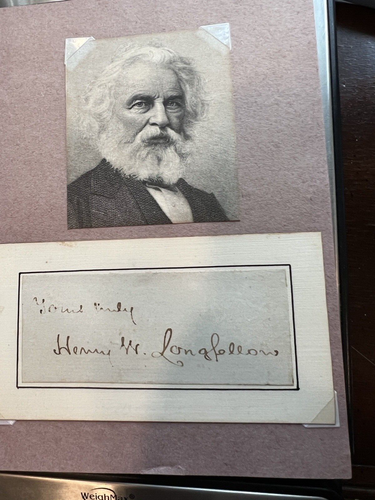 Yours truly
Henry W. Longfellow
WeighMax®